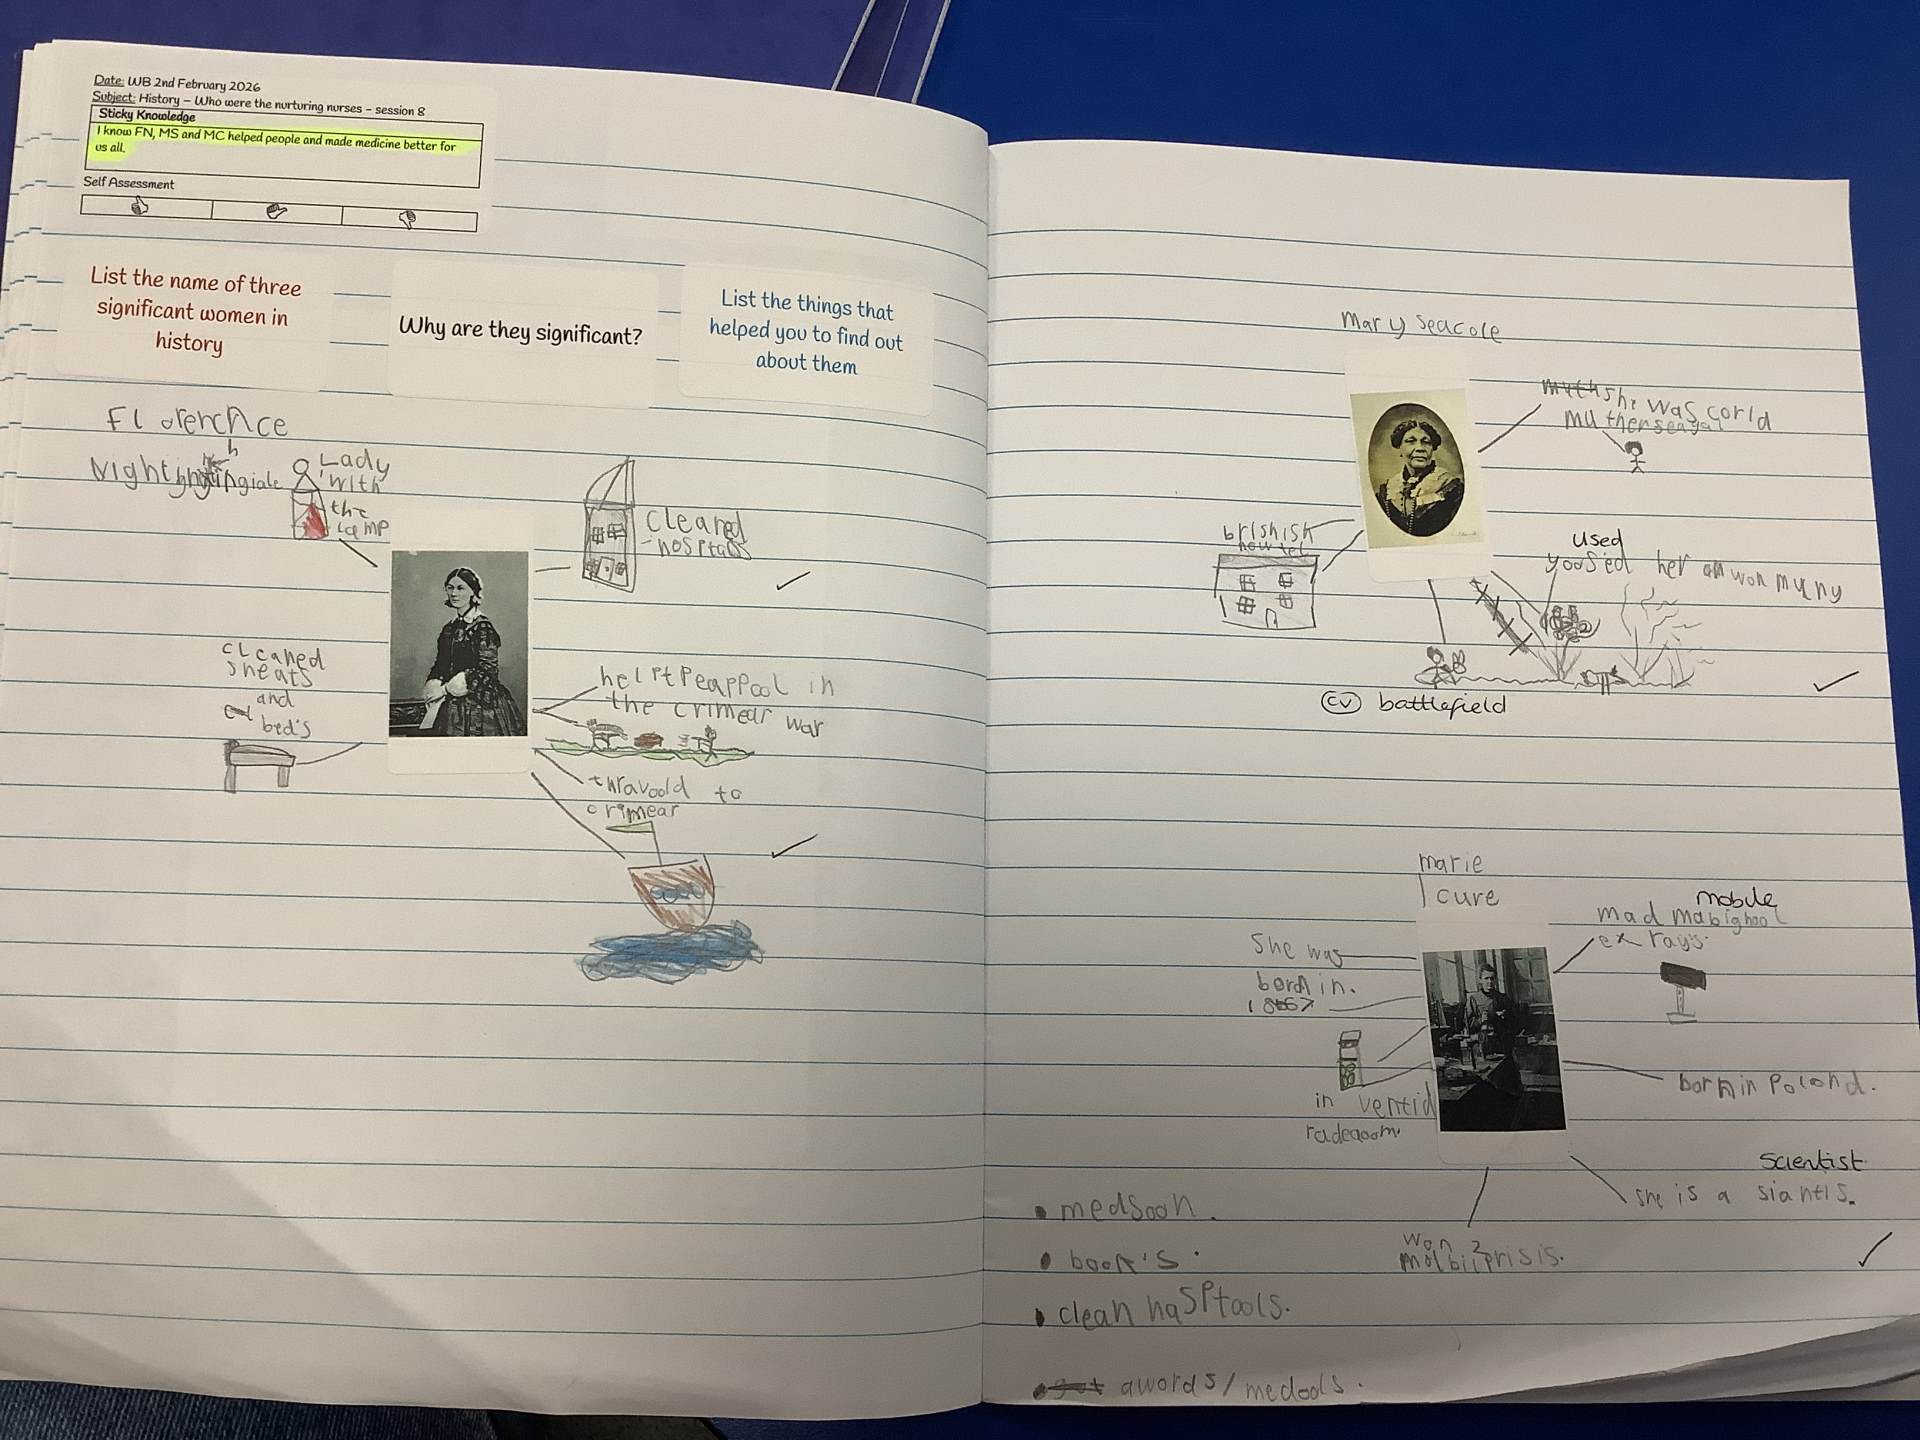 Date: WB 2nd February 2026
Subject: History – Who were the nurturing nurses – session 8
Sticky Knowledge
I know FN, MS and MC helped people and made medicine better for
us all.
Self Assessment
List the name of three
significant women in
history
Why are they significant?
List the things that
helped you to find out
about them
Florence
Lady
with
the
Lamp
cleaned
hosptals
cleaned
sheats
and
bed's
helpt peappool in
the crimear war
thravoold to
crimear
Mary seacole
she was corld
muther seagal
brishish
howtel
used
yoosed her own muny
CV battlefield
marie
cure
she was
born in.
1867
mobile
mad mabighool
ex rays.
born in Polond.
in ventid
radeaoom.
scientist
she is a siantis.
won 2
molbil prisis.
• medsoon.
• book's.
• clean haSPtools.
• awords/medools.